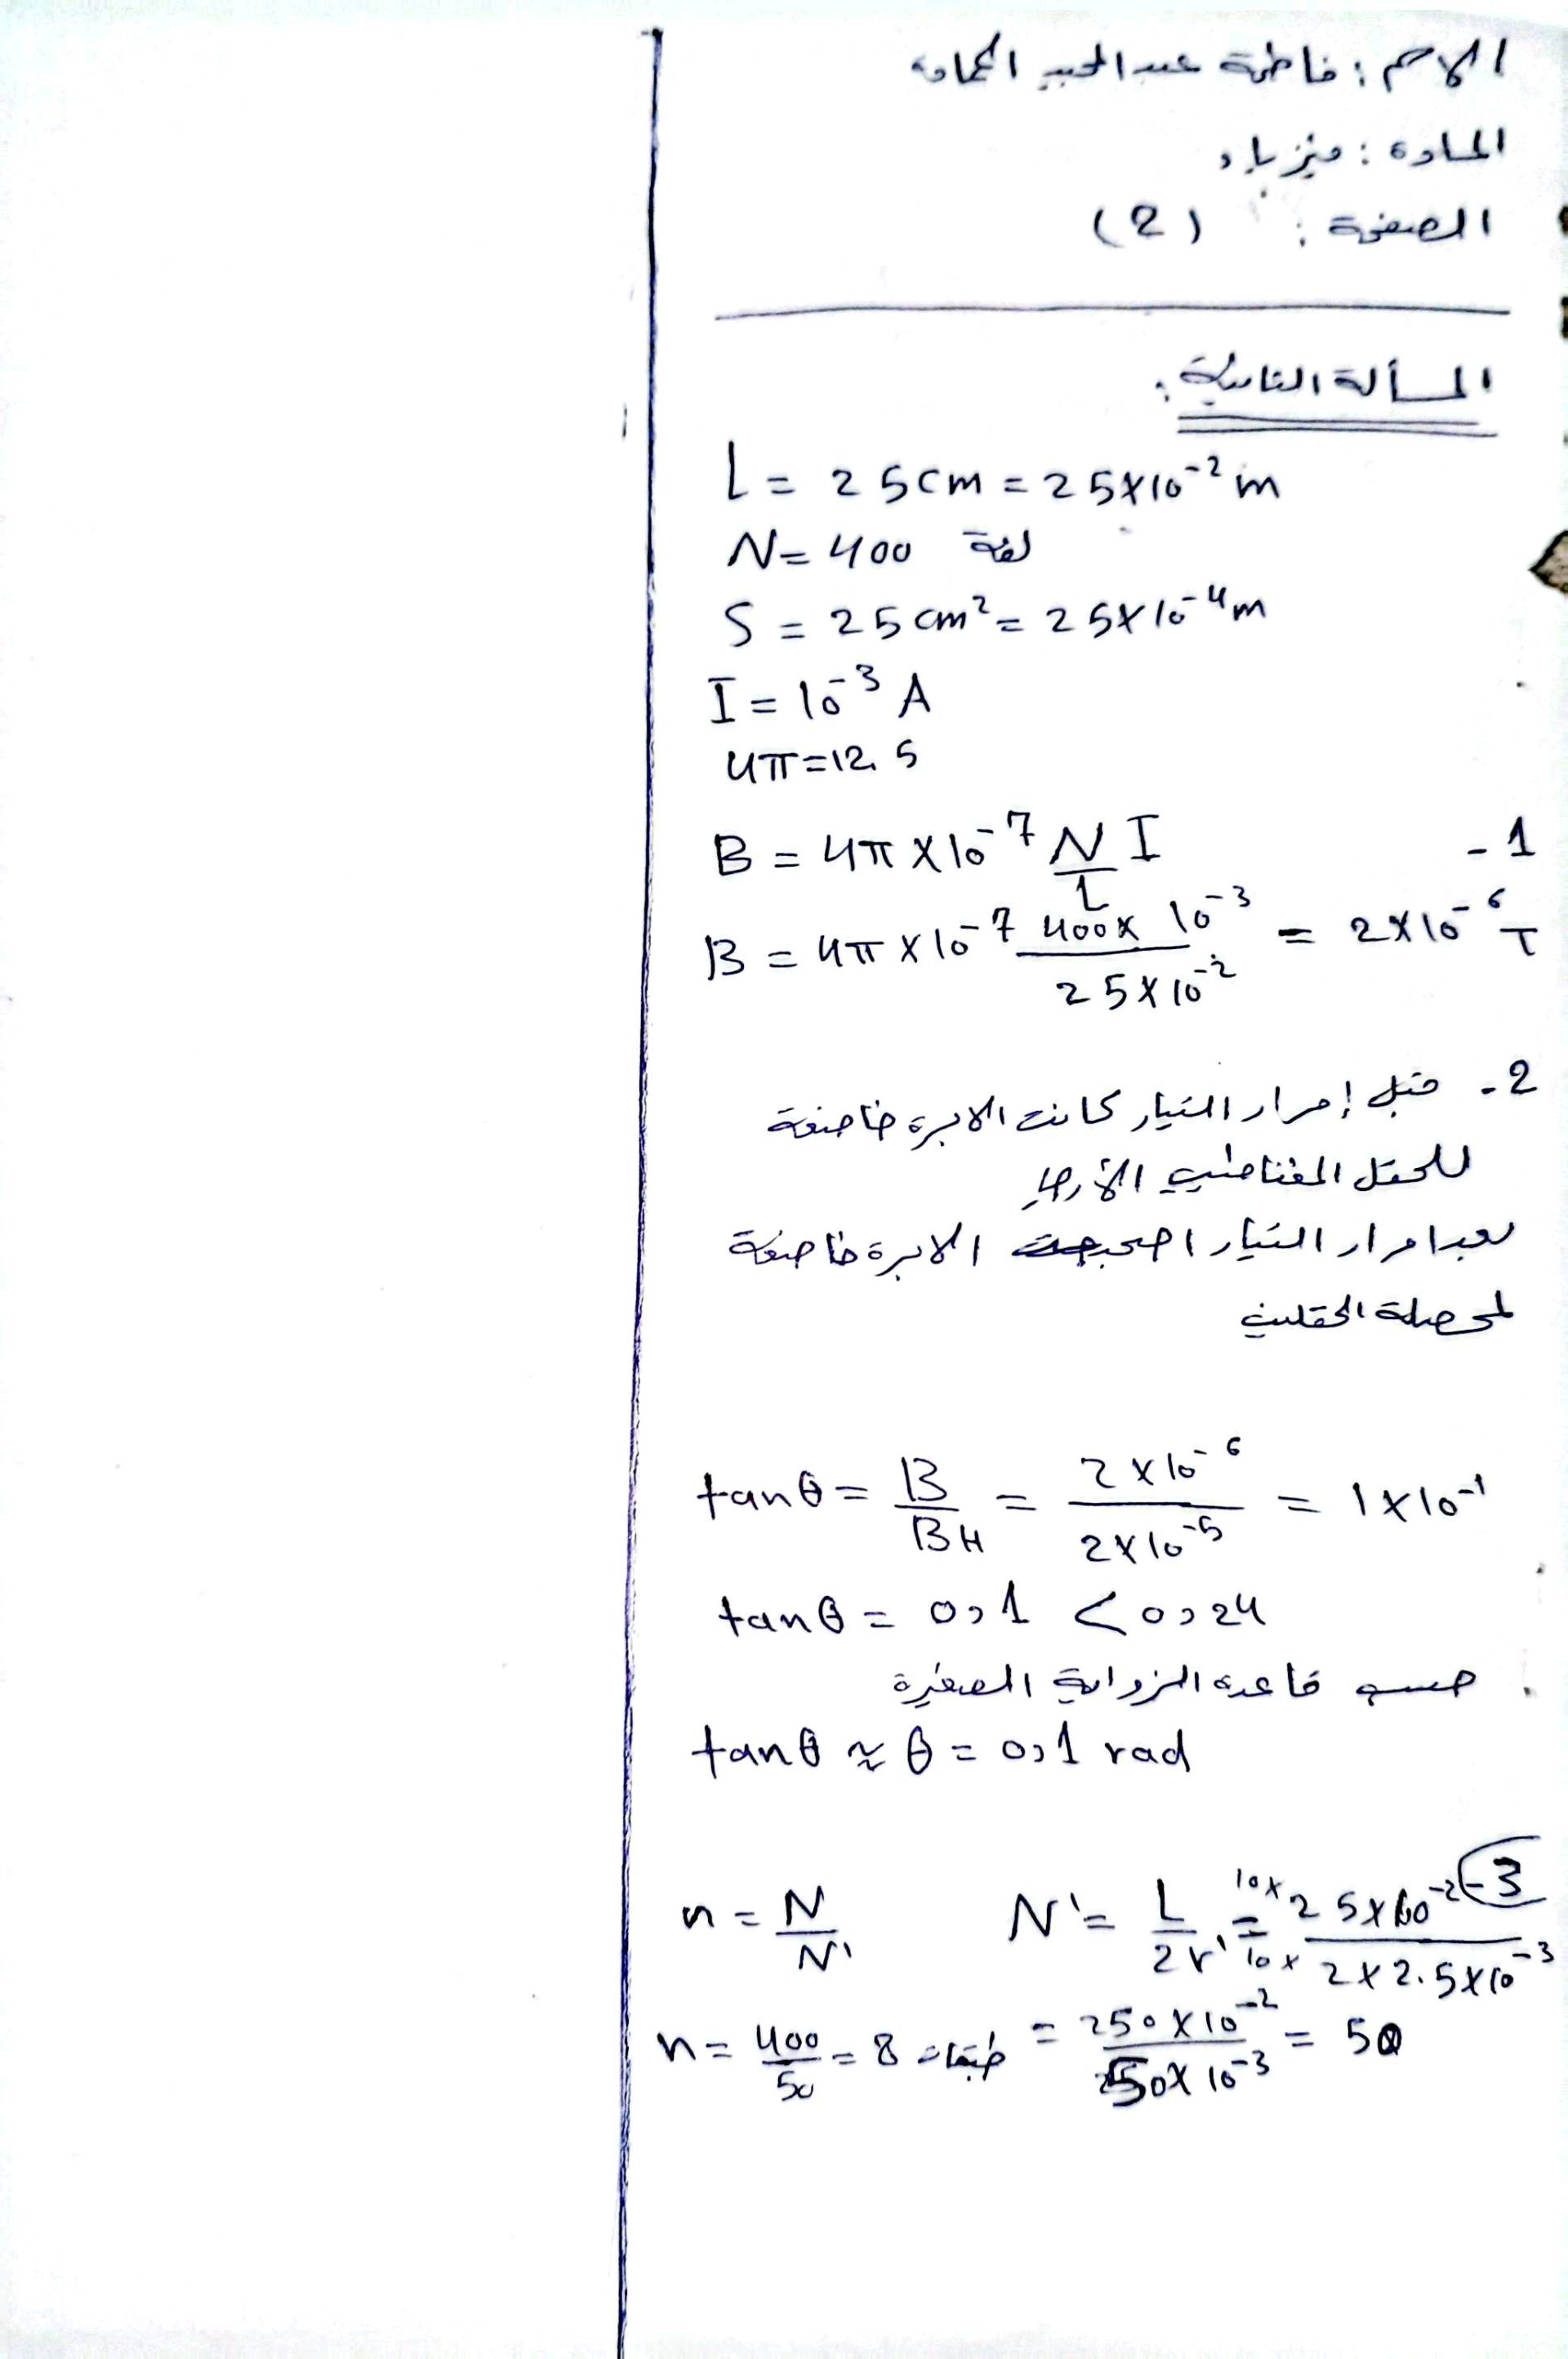 الاسم : فاطمة عبد الحميد
المادة : فيزياء
الصفحة : (2)
المسألة الثانية :
L = 25cm = 25×10⁻² m
N = 400 لفة
S = 25 cm² = 25×10⁻⁴ m
I = 10⁻³ A
4π = 12.5
1 - B = 4π × 10⁻⁷ N/L I
B = 4π × 10⁻⁷ (400 × 10⁻³)/(25 × 10⁻²) = 2×10⁻⁶ T
2 - قبل إمرار التيار كانت الابرة خاضعة
للحقل المغناطيسي الأرضي
بعد امرار التيار اصبحت الابرة خاضعة
لمحصلة الحقلين
tanθ = B/BH = (2×10⁻⁶)/(2×10⁻⁵) = 1×10⁻¹
tanθ = 0,1 < 0,24
حسب قاعدة الزواية الصغيرة
tanθ ≈ θ = 0,1 rad
n = N/N' N' = L/2r' = (10× 25×10⁻²)/(10× 2×2.5×10⁻³) - 3
n = 400/50 = 8 طبقات = (250×10⁻²)/(50×10⁻³) = 50